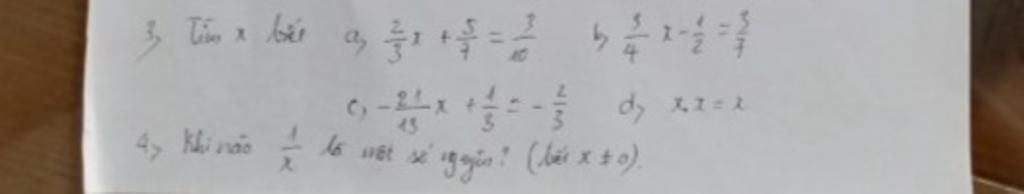 3, Tìm x biết a, 2/3 x + 5/7 = 3/10 b, 3/4 x - 1/2 = 3/7
c, - 21/13 x + 1/3 = - 2/3 d, x.x = x
4, Khi nào 1/x là một số nguyên? (biết x ≠ 0).